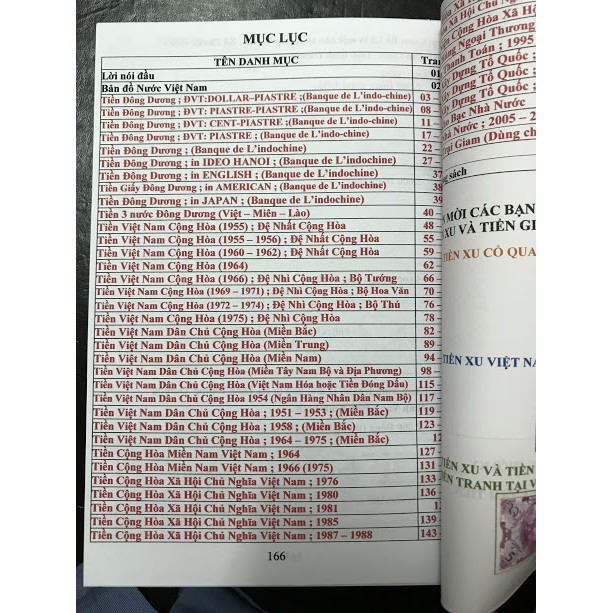 MỤC LỤC
TÊN DANH MỤC Tra
Lời nói đầu 01
Bản đồ Nước Việt Nam 02
Tiền Đông Dương ; ĐVT:DOLLAR–PIASTRE ;(Banque de L'indo-chine) 03 –
Tiền Đông Dương ; ĐVT: PIASTRE-PIASTRE ;(Banque de L'indo-chine) 08 –
Tiền Đông Dương ; ĐVT: CENT-PIASTRE ;(Banque de L'indo-chine) 11 –
Tiền Đông Dương ; ĐVT: PIASTRE ; (Banque de L'indo-chine) 17 –
Tiền Đông Dương ; (Banque de L'indochine) 22 –
Tiền Đông Dương ; in IDEO HANOI ; (Banque de L'indochine) 27 –
Tiền Đông Dương ; in ENGLISH ; (Banque de L'indochine) 37
Tiền Giấy Đông Dương ; in AMERICAN ; (Banque de L'indochine) 38
Tiền Đông Dương ; in JAPAN ; (Banque de L'indochine) 39
Tiền 3 nước Đông Dương (Việt – Miên – Lào) 40 –
Tiền Việt Nam Cộng Hòa (1955) ; Đệ Nhất Cộng Hòa 48 –
Tiền Việt Nam Cộng Hòa (1955 – 1956) ; Đệ Nhất Cộng Hòa 55
Tiền Việt Nam Cộng Hòa (1960 – 1962) ; Đệ Nhất Cộng Hòa 59
Tiền Việt Nam Cộng Hòa (1964) 62 –
Tiền Việt Nam Cộng Hòa (1966) ; Đệ Nhì Cộng Hòa ; Bộ Tướng 66 –
Tiền Việt Nam Cộng Hòa (1969 – 1971) ; Đệ Nhì Cộng Hòa ; Bộ Hoa Văn 70 –
Tiền Việt Nam Cộng Hòa (1972 – 1974) ; Đệ Nhì Cộng Hòa ; Bộ Thú 76 –
Tiền Việt Nam Cộng Hòa (1975) ; Đệ Nhì Cộng Hòa 78 –
Tiền Việt Nam Dân Chủ Cộng Hòa (Miền Bắc) 82 –
Tiền Việt Nam Dân Chủ Cộng Hòa (Miền Trung) 89 –
Tiền Việt Nam Dân Chủ Cộng Hòa (Miền Nam) 94 –
Tiền Việt Nam Dân Chủ Cộng Hòa (Miền Tây Nam Bộ và Địa Phương) 98 –
Tiền Việt Nam Dân Chủ Cộng Hòa (Việt Nam Hóa hoặc Tiền Đóng Dấu) 115 –
Tiền Việt Nam Dân Chủ Cộng Hòa 1954 (Ngân Hàng Nhân Dân Nam Bộ) 117 –
Tiền Việt Nam Dân Chủ Cộng Hòa ; 1951 – 1953 ; (Miền Bắc) 119 –
Tiền Việt Nam Dân Chủ Cộng Hòa ; 1958 ; (Miền Bắc) 123 –
Tiền Việt Nam Dân Chủ Cộng Hòa ; 1964 – 1975 ; (Miền Bắc) 12
Tiền Cộng Hòa Miền Nam Việt Nam ; 1964 127 –
Tiền Cộng Hòa Miền Nam Việt Nam ; 1966 (1975) 131 –
Tiền Cộng Hòa Xã Hội Chủ Nghĩa Việt Nam ; 1976 133 –
Tiền Cộng Hòa Xã Hội Chủ Nghĩa Việt Nam ; 1980 136 –
Tiền Cộng Hòa Xã Hội Chủ Nghĩa Việt Nam ; 1981 13
Tiền Cộng Hòa Xã Hội Chủ Nghĩa Việt Nam ; 1985 139 –
Tiền Cộng Hòa Xã Hội Chủ Nghĩa Việt Nam ; 1987 – 1988 143 –
166
Xã Hội Chủ Ng
Cộng Hòa Xã Hội
Ngoại Thương
Thanh Toán ; 1995
Dựng Tổ Quốc ;
Dựng Tổ Quốc ;
Dựng Tổ Quốc ;
Bạc Nhà Nước
Nhà Nước ; 2005 – 2
Trại Giam (Dùng ch
sách
MỜI CÁC BẠN
XU VÀ TIỀN GI
TIỀN XU CỔ QUA
TIỀN XU VIỆT NA
TIỀN XU VÀ TIỀN
TRANH TẠI V